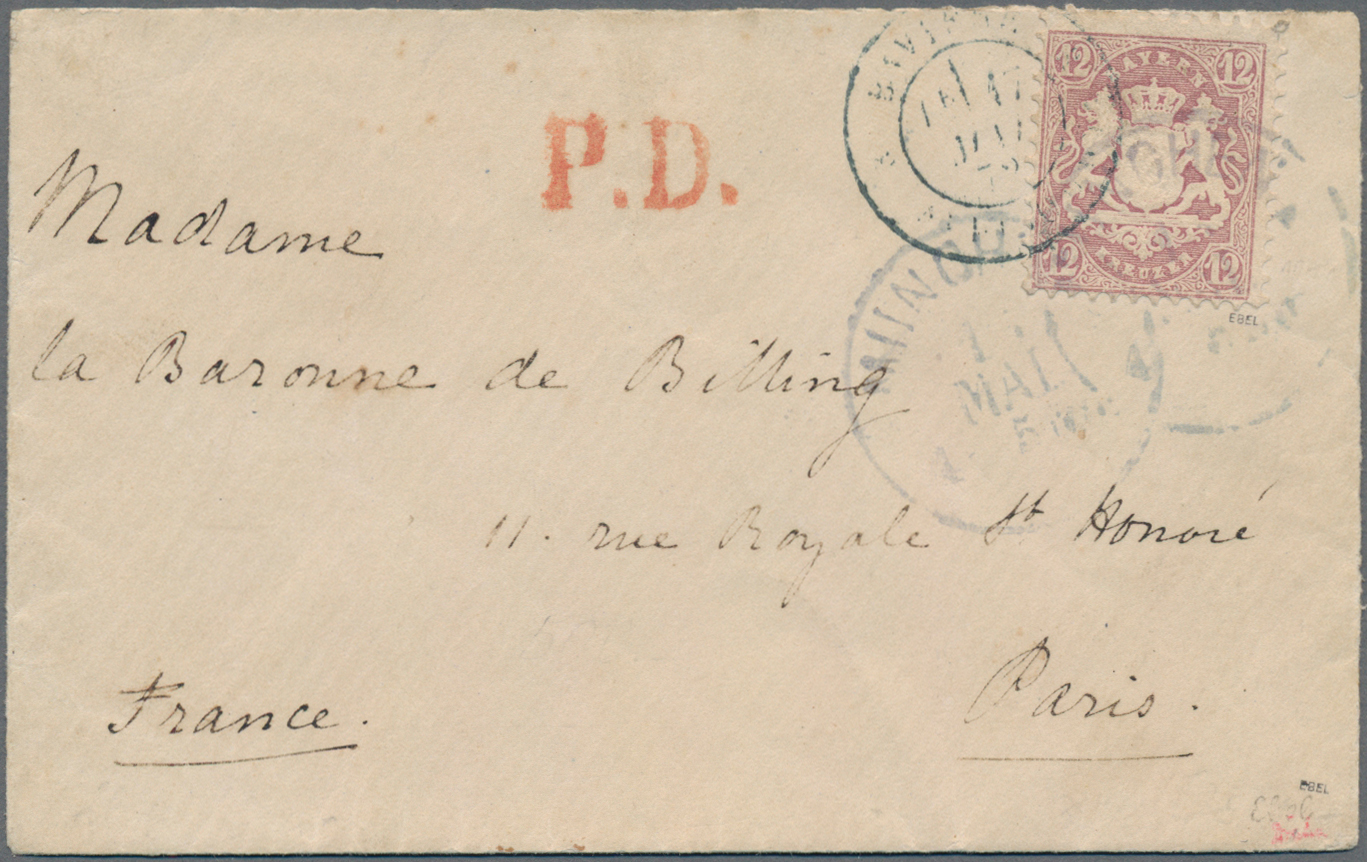 P.D.
12 BAYERN 12
12 KREUZER 12
EBEL
Madame
la Baronne de Billing
11. rue Royale St Honoré
Paris.
France.
MAI
EBEL